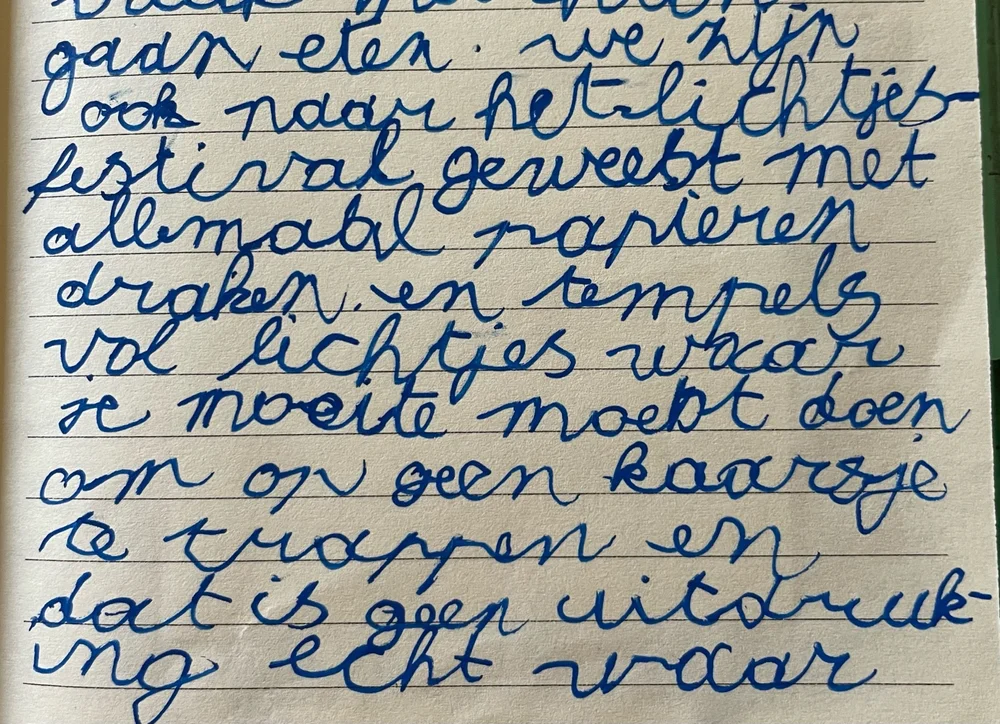 gaan eten. we zijn
ook naar het lichtjes-
festival geweest met
allemaal papieren
draken en tempels
vol lichtjes waar
je moeite moest doen
om op geen kaarsje
te trappen en
dat is geen uitdruk-
ing echt waar